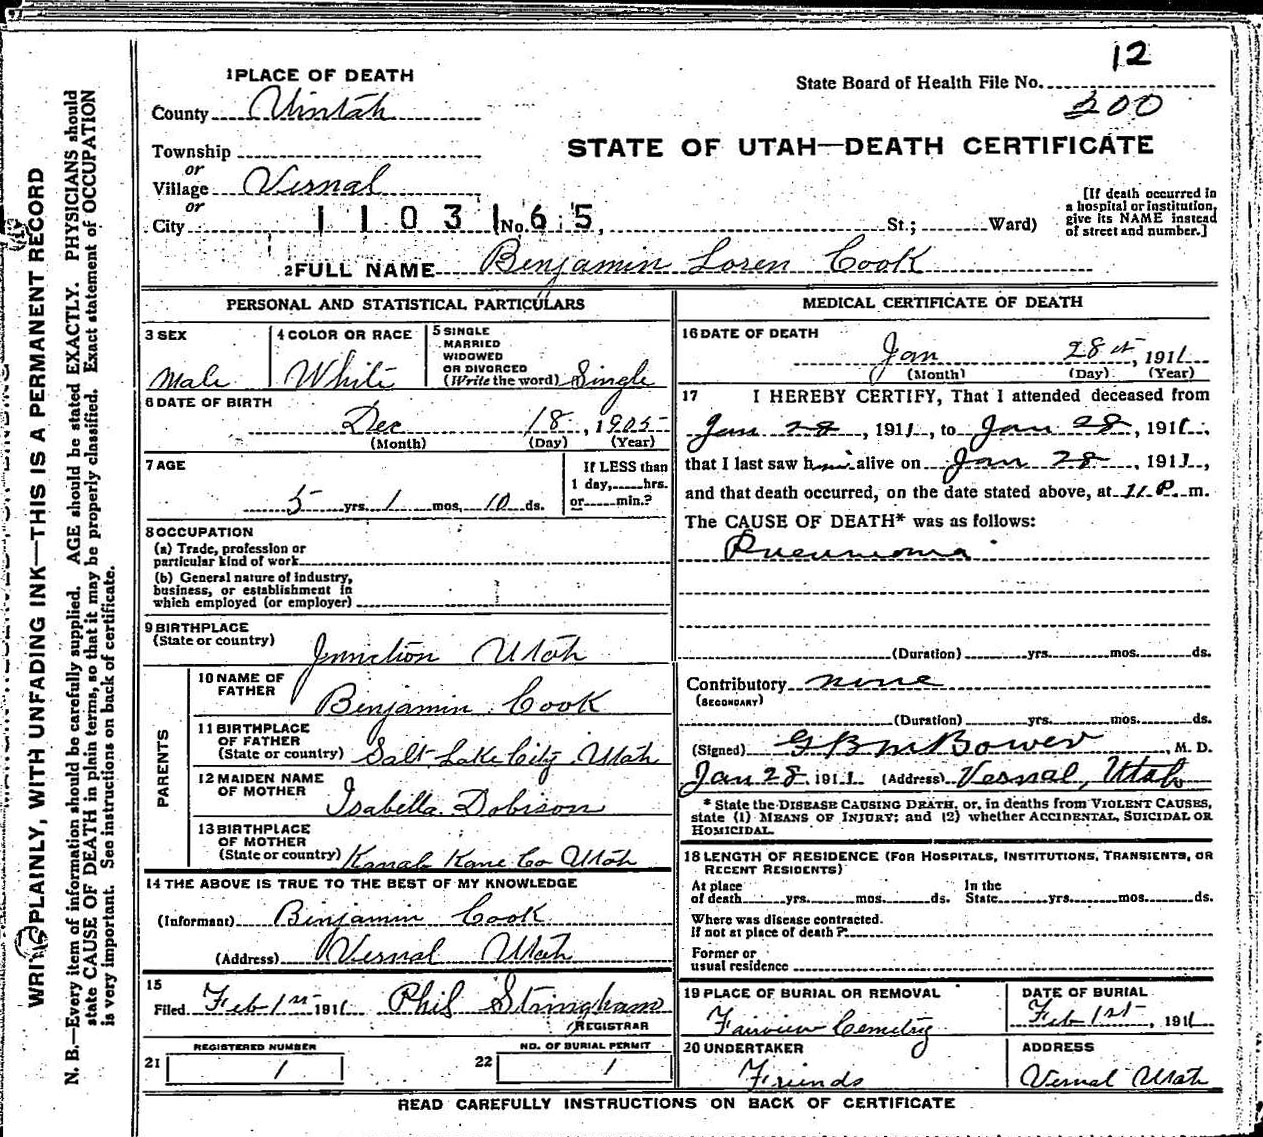 12
1 PLACE OF DEATH
State Board of Health File No.
200
County Uintah
STATE OF UTAH—DEATH CERTIFICATE
Township
or
Village Vernal
or
City 1 1 0 3 1 No. 6 5, St.; Ward)
[If death occurred in a hospital or institution, give its NAME instead of street and number.]
2 FULL NAME Benjamin Loren Cook
PERSONAL AND STATISTICAL PARTICULARS
3 SEX
Male
4 COLOR OR RACE
White
5 SINGLE
MARRIED
WIDOWED
OR DIVORCED
(Write the word) Single
6 DATE OF BIRTH
Dec 18, 1905
(Month) (Day) (Year)
7 AGE
5 yrs. 1 mos. 10 ds.
If LESS than
1 day, hrs.
or min.?
8 OCCUPATION
(a) Trade, profession or
particular kind of work
(b) General nature of industry,
business, or establishment in
which employed (or employer)
9 BIRTHPLACE
(State or country)
Junction Utah
PARENTS
10 NAME OF
FATHER
Benjamin Cook
11 BIRTHPLACE
OF FATHER
(State or country) Salt Lake City Utah
12 MAIDEN NAME
OF MOTHER
Isabella Dobison
13 BIRTHPLACE
OF MOTHER
(State or country) Kanab Kane Co Utah
14 THE ABOVE IS TRUE TO THE BEST OF MY KNOWLEDGE
(Informant) Benjamin Cook
(Address) Vernal Utah
15
Filed Feb 1st 1911 Phil Stringham
REGISTRAR
REGISTERED NUMBER
21 1
NO. OF BURIAL PERMIT
22 1
MEDICAL CERTIFICATE OF DEATH
16 DATE OF DEATH
Jan 28th, 1911
(Month) (Day) (Year)
17 I HEREBY CERTIFY, That I attended deceased from
Jan 28, 1911, to Jan 28, 1911,
that I last saw him alive on Jan 28, 1911,
and that death occurred, on the date stated above, at 11 P. m.
The CAUSE OF DEATH* was as follows:
Pneumonia
(Duration) yrs. mos. ds.
Contributory none
(SECONDARY)
(Duration) yrs. mos. ds.
(Signed) M. D.
Jan 28 1911 (Address) Vernal, Utah
* State the DISEASE CAUSING DEATH, or, in deaths from VIOLENT CAUSES,
state (1) MEANS OF INJURY; and (2) whether ACCIDENTAL, SUICIDAL OR
HOMICIDAL.
18 LENGTH OF RESIDENCE (FOR HOSPITALS, INSTITUTIONS, TRANSIENTS, OR
RECENT RESIDENTS)
At place
of death yrs. mos. ds.
In the
State yrs. mos. ds.
Where was disease contracted.
If not at place of death?
Former or
usual residence
19 PLACE OF BURIAL OR REMOVAL
Fairview Cemetry
DATE OF BURIAL
Feb 1st, 1911
20 UNDERTAKER
Friends
ADDRESS
Vernal Utah
READ CAREFULLY INSTRUCTIONS ON BACK OF CERTIFICATE
WRITE PLAINLY, WITH UNFADING INK—THIS IS A PERMANENT RECORD
N. B.—Every item of information should be carefully supplied. AGE should be stated EXACTLY. PHYSICIANS should
state CAUSE OF DEATH in plain terms, so that it may be properly classified. Exact statement of OCCUPATION
is very important. See instructions on back of certificate.